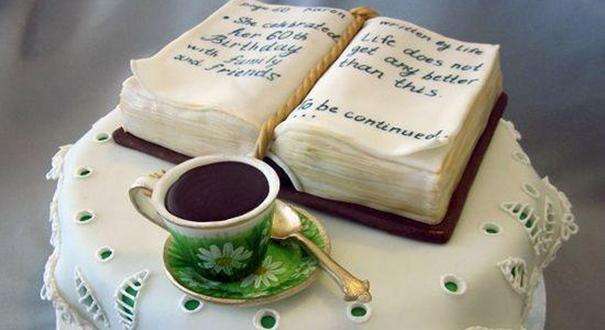 page 60 Karen
• She celebrated
her 60th
Birthday
with family
and friends
written by Life
Life does not
get any better
than this.
To be continued
...